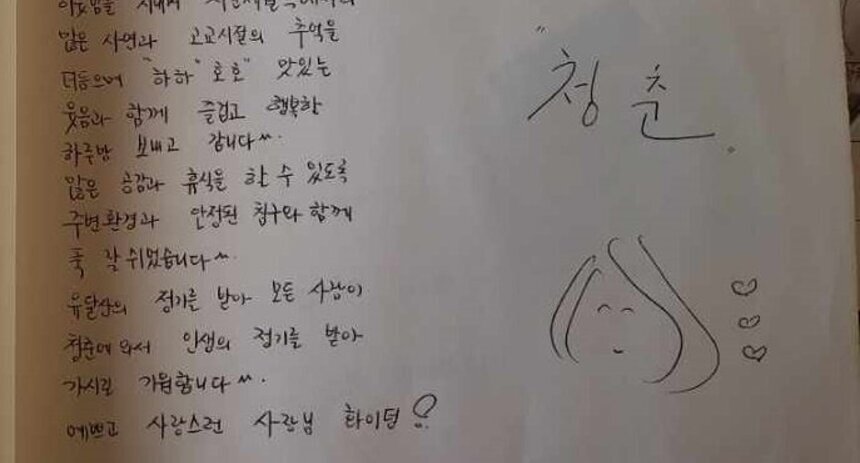 많은 사연과 고교시절의 추억을
더듬으며 "하하" 호호" 맛있는
웃음과 함께 즐겁고 행복한
하루밤 보내고 갑니다^^.
많은 공감과 휴식을 할 수 있도록
주변환경과 안정된 침구와 함께
푹 잘 쉬었습니다^^
유달산의 정기를 받아 모든 사람이
청춘에 와서 인생의 정기를 받아
가시길 기원합니다^^.
예쁘고 사랑스런 사장님 화이팅
"청춘"